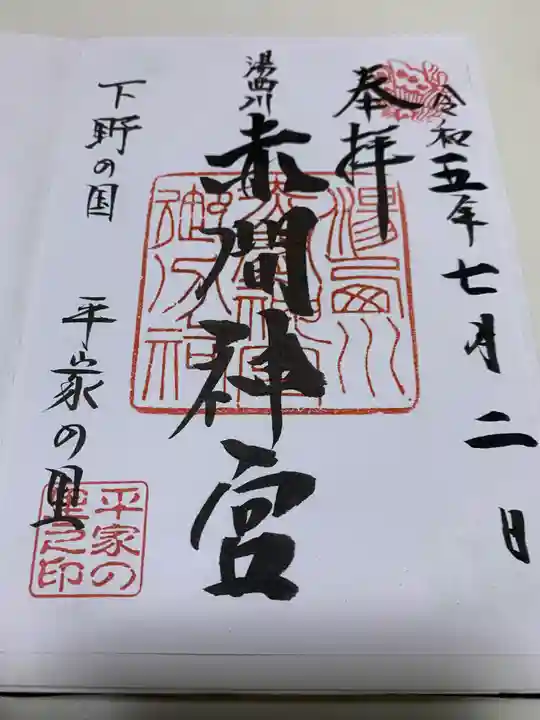 令和五年七月二日
奉拝
湯西川
赤間神宮
下野の国 平家の里
湯西川
赤間神宮
御分祀
平家の
里之印